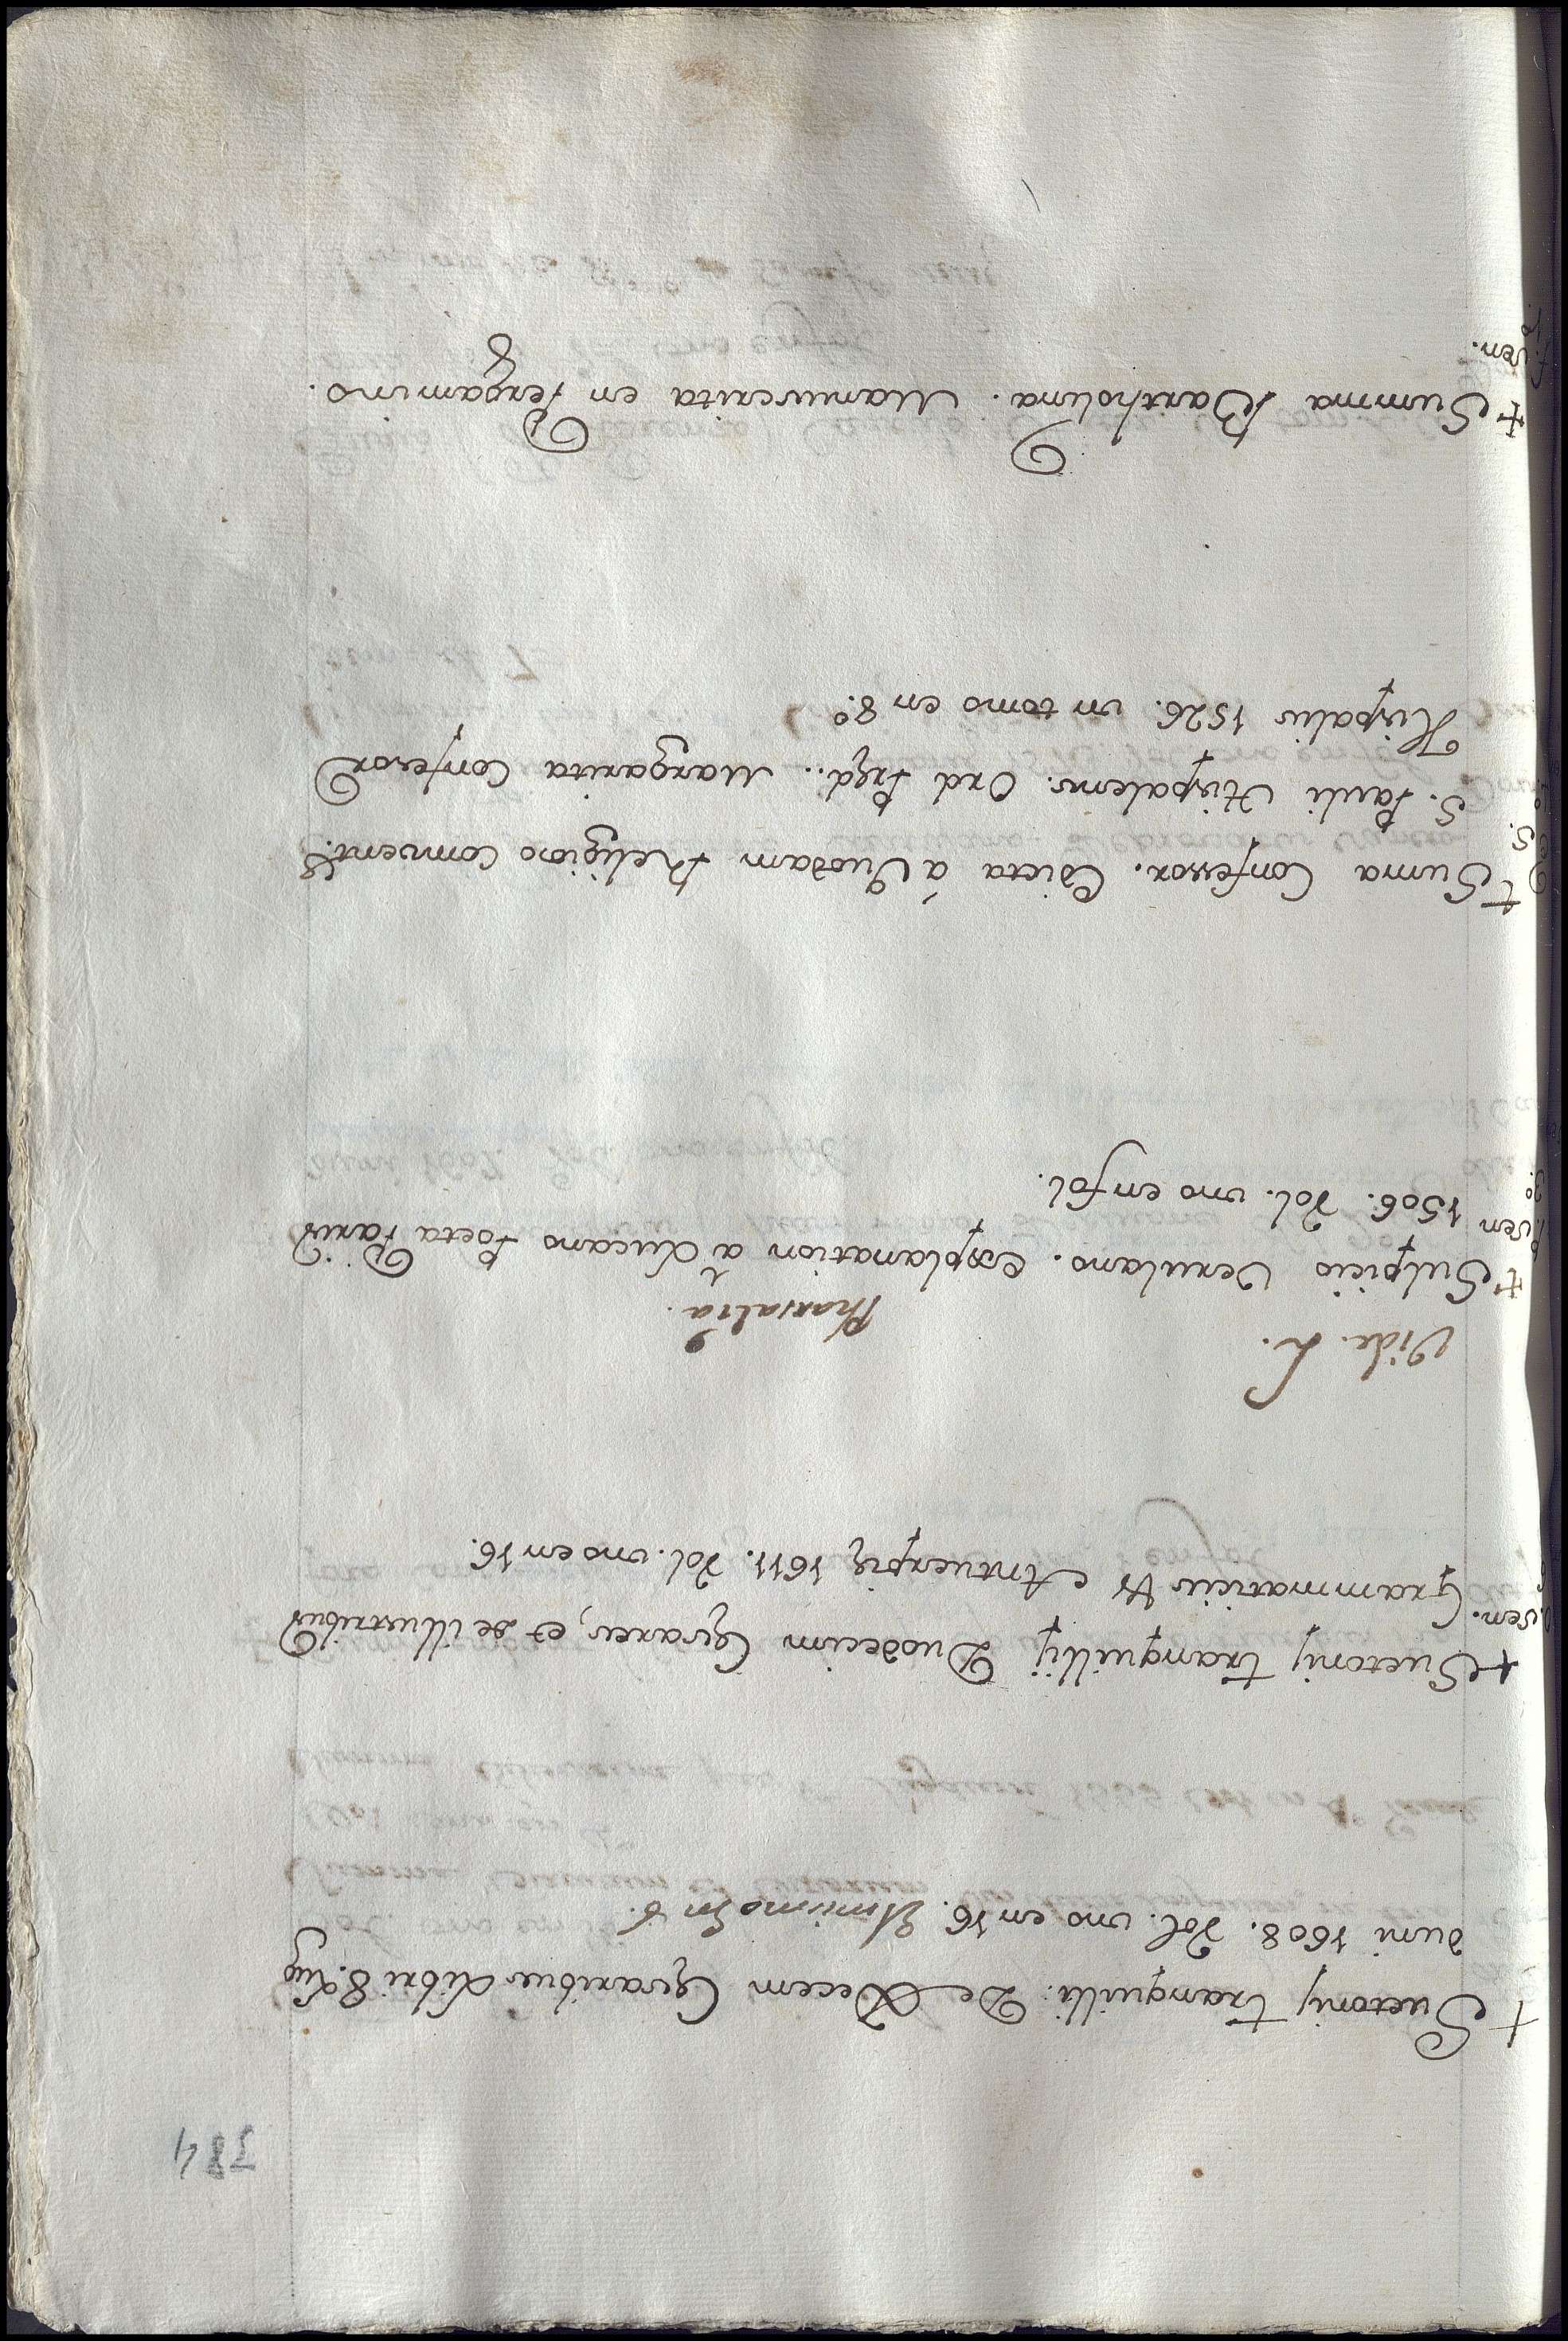 384
+ Suetonij tranquilli: De Decem Cęsaribus Libri 8. Lug
duni 1608. Vol. uno en 16.
+ Suetonij tranquillij Duodecim Cęsares, et de illustribus
Gramaticis Antuerpię 1611. Vol. uno en 16.
Vide. L.
Pharsalia.
+ Sulpicio Verulano. Explanation a Lucano Poeta Paris
1506. Vol. uno en fol.
+ Suma Confessor. Edicta á Quodam Religioso Comvent.
S. Pauli Hispalens. Ord Pręd.. Margarita Confesor
Hispalis 1526. un tomo en 8.º
+ Summa Bartholina. Manuscrita en Pergamino.